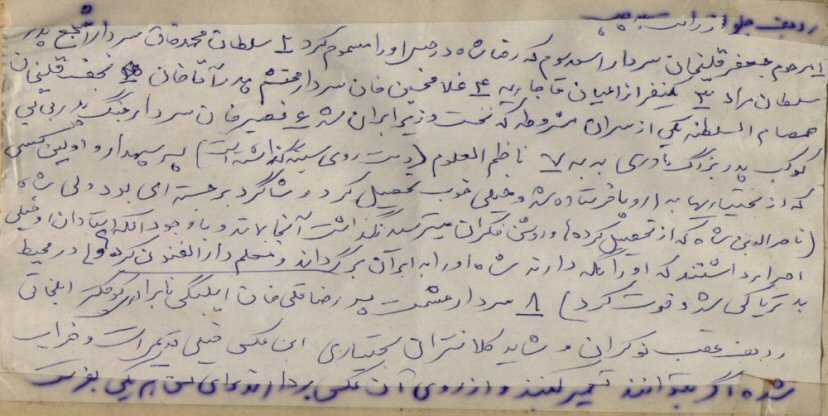 ردیف جلو از راست به چپ
۱ مرحوم جعفرقلیخان سردار اسعد سوم که رضا شاه در حبس اورا مسموم کرد ۲ سلطان محمدخان سردار اشجع پدر
سلطان مراد ۳ یکنفر از اعیان قاجاریه ۴ غلامحسین خان سردار محتشم پدر آقاخان ۵ نجف قلیخان
صمصام السلطنه یکی از سران مشروطه که نخست وزیر ایران شد ۶ نصیرخان سردار جنگ پدر بی بی
کوکب پدر بزرگ مادری به به ۷ ناظم العلوم (دست روی سینه گذاشته است) پسر سپهدار و اولین کسی
که از بختیاریها به اروپا فرستاده شد و خیلی خوب تحصیل کرد و شاگرد برجسته ای بود ولی شاه
(ناصرالدین شاه که از تحصیل کرده ها و روشن فکران میترسید نگذاشت آنجا بماند و با وجود آنکه استادان او خیلی
اصرار داشتند که او را نگه دارند شاه او را به ایران برگرداند و معلم دارالفنون کرد و او در محیط
بد تریاکی شد و فوت کرد) ۸ سردار حشمت پسر رضا قلی خان ایلبگی نابرادری ایلخانی
ردیف عقب نوکران و شاید کلانتران بختیاری این عکس خیلی قدیمی است و خراب
شده اگر بتوانند تعمیر کنند و از روی آن عکس بردارند برای من هم یکی بفرستند